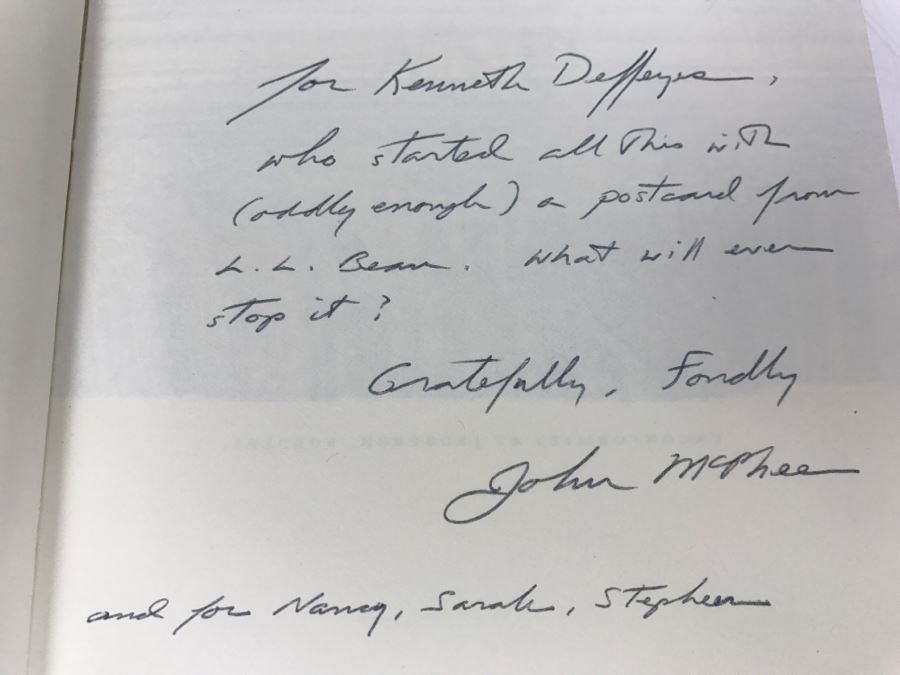 for Kenneth Deffeyes,
who started all this with
(oddly enough) a postcard from
L. L. Bean. What will ever
stop it?
Gratefully, Fondly
John McPhee
and for Nancy, Sarah, Stephen